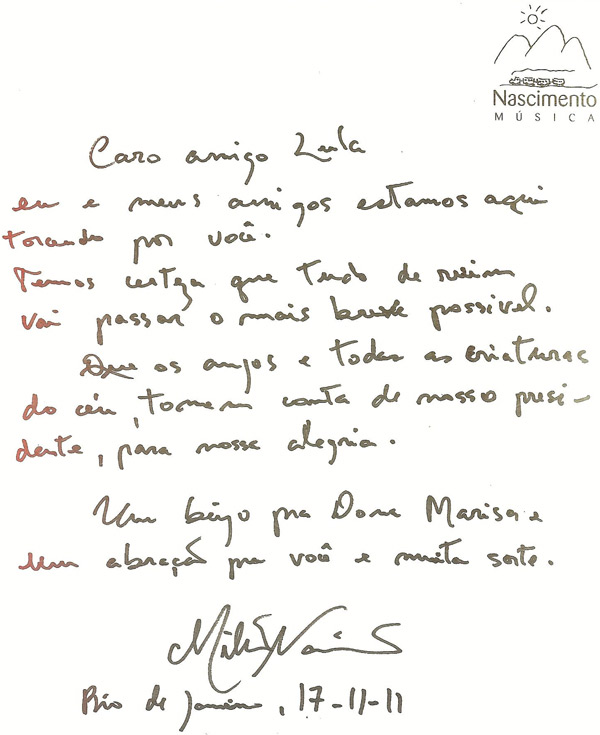 Nascimento
MÚSICA
Caro amigo Lula
eu e meus amigos estamos aqui
torcendo por você.
Temos certeza que tudo de ruim
vai passar o mais breve possível.
Que os anjos e todas as criaturas
do céu, tomem conta de nosso presi-
dente, para nossa alegria.
Um beijo pra Dona Marisa e
um abração pra você e muita sorte.
Milton Nascimento
Rio de Janeiro, 17-11-11